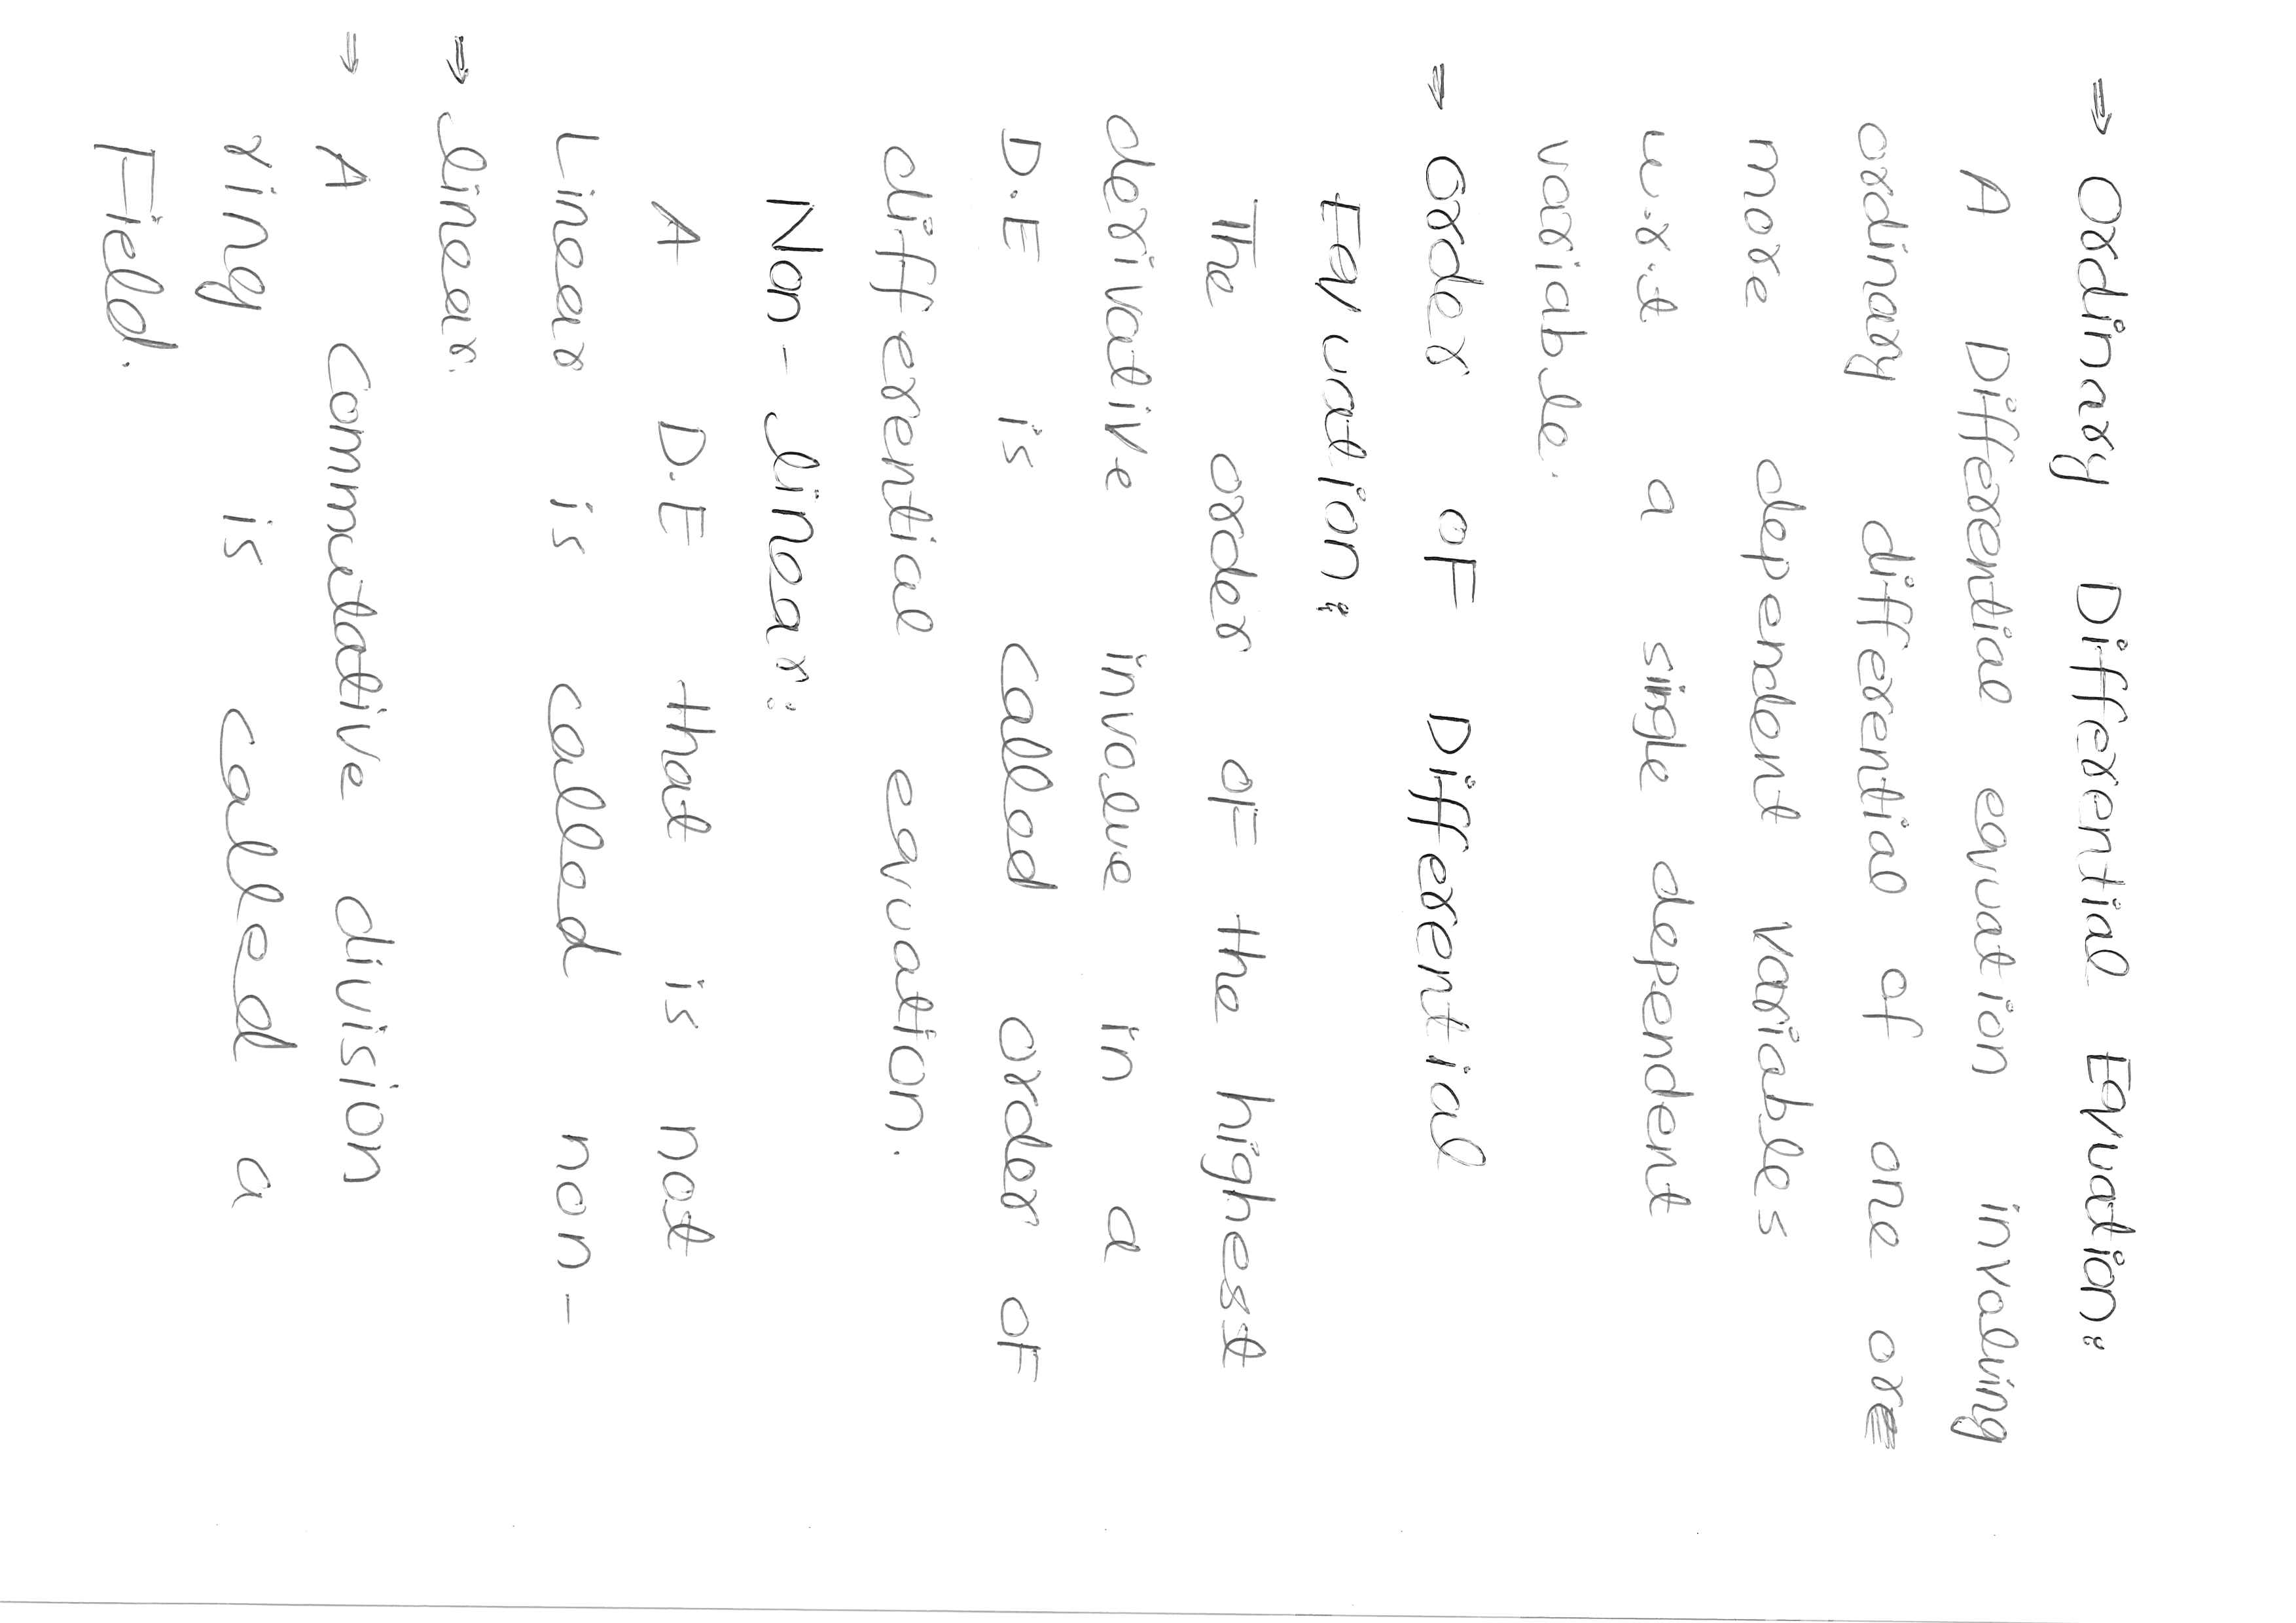 ⇒ Ordinary Differential Equation:
A Differential equation involving
ordinary differential of one or
more dependent variables
w.r.t a single dependent
variable.
⇒ Order OF Differential
Equation:
The order OF the highest
derivative involve in a
D.E is called order OF
differential equation.
Non-linear:
A D.E that is not
Linear is called non-
⇒ linear.
⇒ A Commutative division
ring is called a
Field.